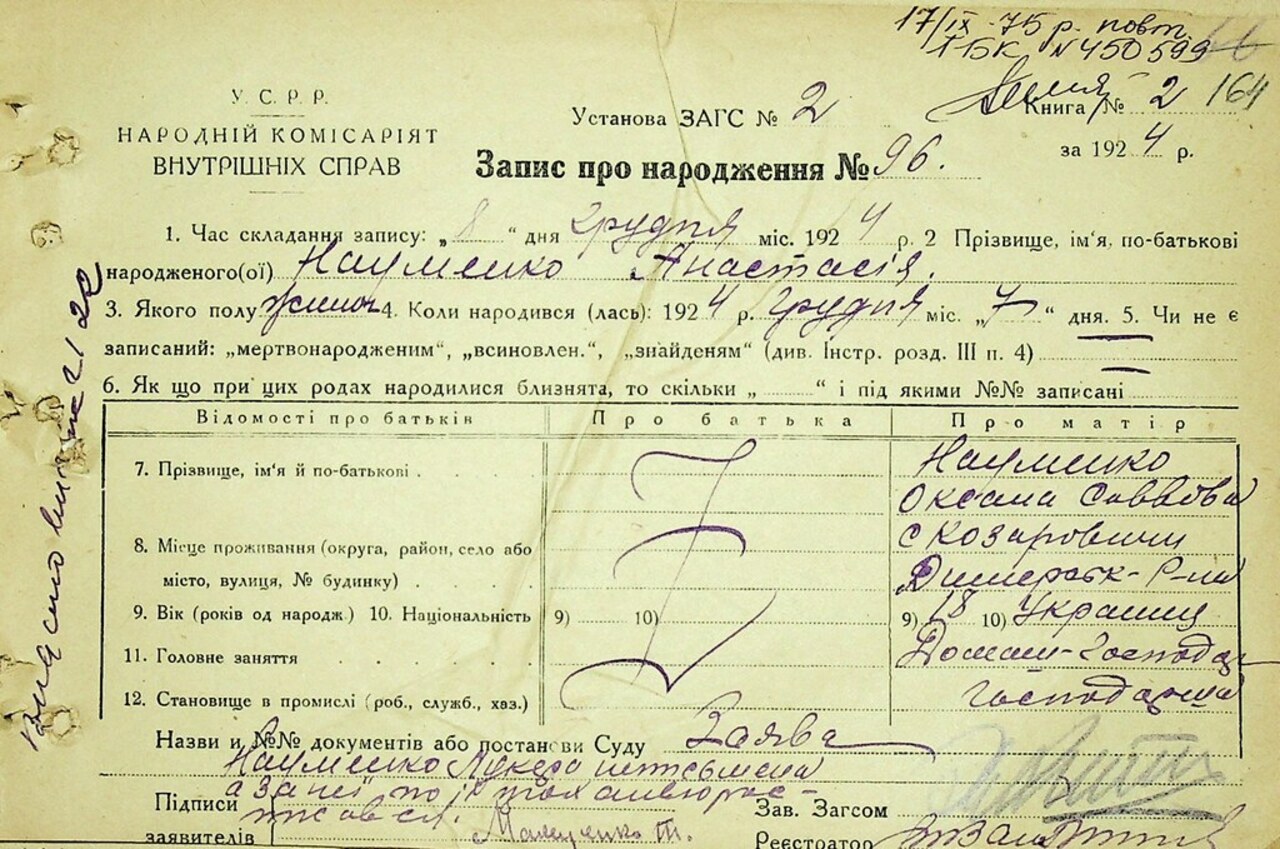 17/IX-75 р. повт.
ІБК N450599
У. С. Р. Р.
НАРОДНІЙ КОМІСАРІЯТ
ВНУТРІШНІХ СПРАВ
Установа ЗАГС № 2
Книга № 2 164
Запис про народження № 96.
за 1924 р.
1. Час складання запису: „8“ дня грудня міс. 1924 р. 2 Прізвище, ім'я, по-батькові
народженого(ої) Науменко Анастасія.
3. Якого полу жіноч 4. Коли народився (лась): 1924 р. грудня міс. „7“ дня. 5. Чи не є
записаний: „мертвонародженим“, „всиновлен.“, „знайденям“ (див. Інстр. розд. III п. 4)
6. Як що при цих родах народилися близнята, то скільки „ “ і під якими №№ записані
Відомості про батьків Про батька Про матір
7. Прізвище, ім'я й по-батькові Науменко
Оксана Саввова
8. Місце проживання (округа, район, село або с Козаровичи
місто, вулиця, № будинку) Димерськ- Р-на
9. Вік (років од народж.) 10. Національність 9) 10) 9) 18 10) Украинц
11. Головне заняття Домаш-Господар
12. Становище в промислі (роб., служб., хаз.) господарша
Назви и №№ документів або постанови Суду Заява
Науменко Лукера
Підписи
заявителів
Зав. Загсом
Реєстратор